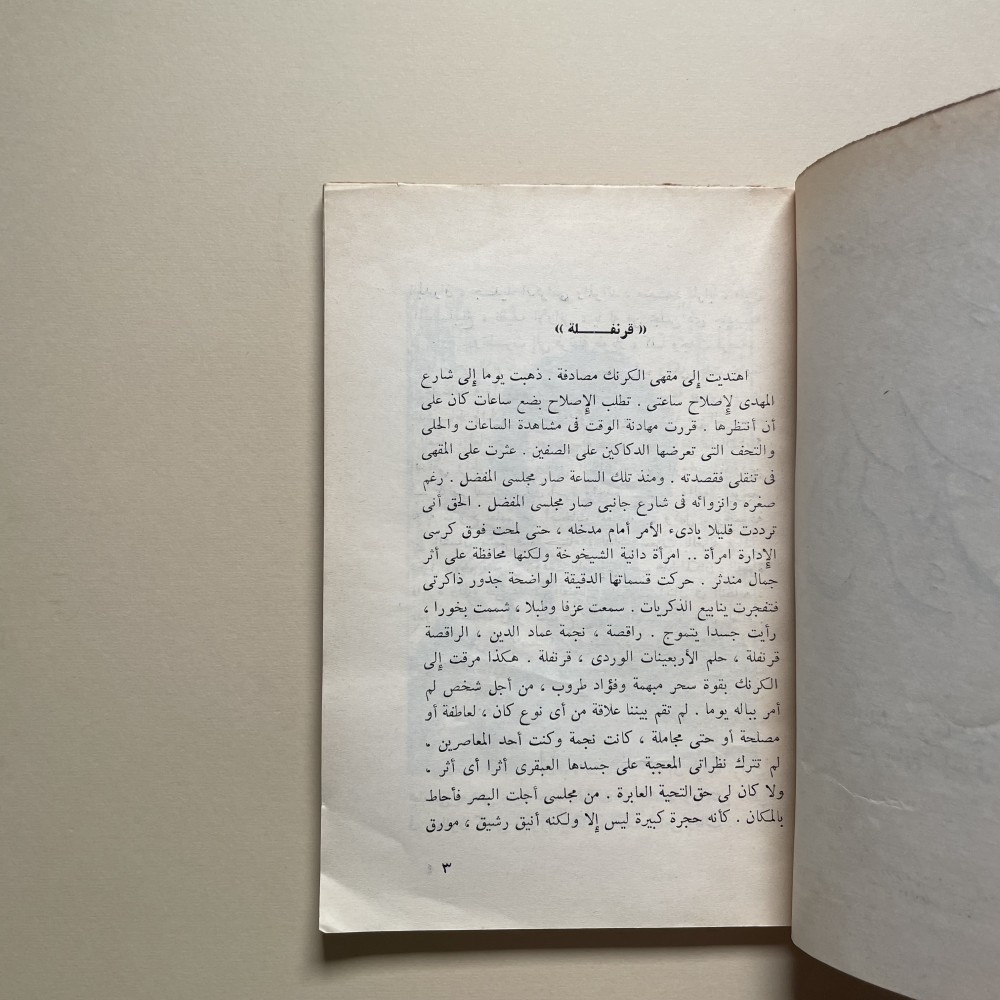 « قرنفـــــلة »
اهتديت إلى مقهى الكرنك مصادفة . ذهبت يوما إلى شارع
المهدى لإصلاح ساعتى . تطلب الإصلاح بضع ساعات كان على
أن أنتظرها . قررت مهادنة الوقت فى مشاهدة الساعات والحلى
والتحف التى تعرضها الدكاكين على الصفين . عثرت على المقهى
فى تنقلى فقصدته . ومنذ تلك الساعة صار مجلسى المفضل . رغم
صغره وانزوائه فى شارع جانبى صار مجلسى المفضل . الحق أنى
ترددت قليلا بادىء الأمر أمام مدخله ، حتى لمحت فوق كرسى
الإدارة امرأة .. امرأة دانية الشيخوخة ولكنها محافظة على أثر
جمال مندثر . حركت قسماتها الدقيقة الواضحة جذور ذاكرتى
فتفجرت ينابيع الذكريات . سمعت عزفا وطبلا ، شممت بخورا ،
رأيت جسدا يتموج . راقصة ، نجمة عماد الدين ، الراقصة
قرنفلة ، حلم الأربعينات الوردى ، قرنفلة . هكذا مرقت إلى
الكرنك بقوة سحر مبهمة وفؤاد طروب ، من أجل شخص لم
أمر بباله يوما . لم تقم بيننا علاقة من أى نوع كان ، لعاطفة أو
مصلحة أو حتى مجاملة ، كانت نجمة وكنت أحد المعاصرين .
لم تترك نظراتى المعجبة على جسدها العبقرى أثرا أى أثر .
ولا كان لى حق التحية العابرة . من مجلسى أجلت البصر فأحاط
بالمكان . كأنه حجرة كبيرة ليس إلا ولكنه أنيق رشيق ، مورق
٣